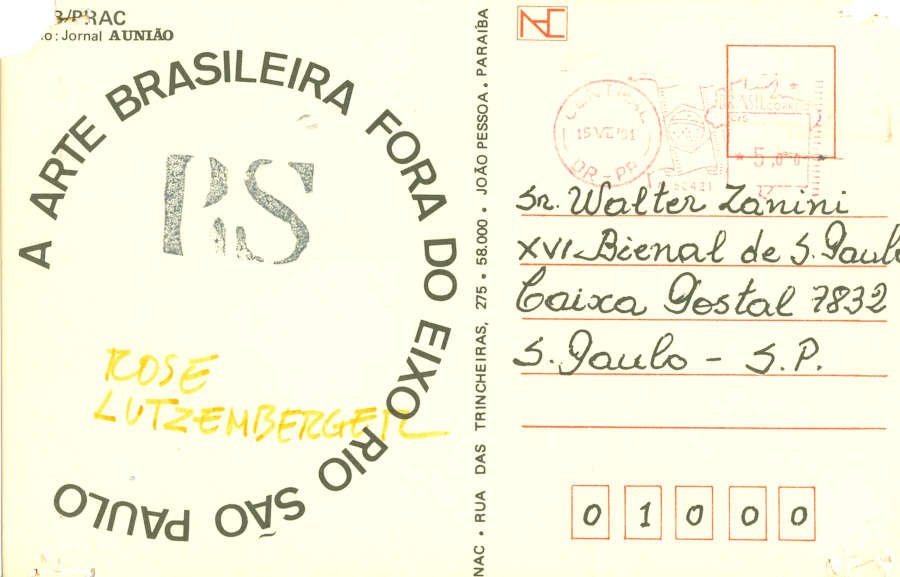 B/PRAC
o: Jornal A UNIÃO
A ARTE BRASILEIRA FORA DO EIXO RIO SÃO PAULO
RS
ROSE
LUTZEMBERGER
NAC • RUA DAS TRINCHEIRAS, 275 • 58.000 • JOÃO PESSOA, PARAÍBA
NAC
CENTRAL
15 VII '81
DR-PB
BRASIL CORREIO
* 5,00 *
Sr. Walter Zanini
XVI Bienal de S. Paulo
Caixa Postal 7832
S. Paulo - S.P.
0 1 0 0 0